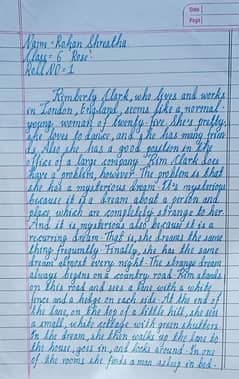 Date
Page
Name - Rohan Shrestha
Class - 6 Rose
Roll NO - 1
Kimberly Clark, who lives and works
in London, England, seems like a normal
young woman of twenty-five. She's pretty,
she loves to dance, and she has many frien
ds. Also she has a good position in the
office of a large company. Kim Clark does
have a problem, however. The problem is that
she has a mysterious dream. It's mysterious
because it is a dream about a person and
place, which are completely strange to her.
And it is mysterious also because it is a
recurring dream. That is, she dreams the same
thing frequently. Finally, she has the same
dream almost every night. The strange dream
always begins on a country road. Kim stands
on this road and sees a lane with a white
fence and a hedge on each side. At the end of
the lane, on the top of a little hill, she sees
a small, white cottage with green shutters.
In the dream, she then walks up the lane to
the house, goes in, and looks around. In one
of the rooms she finds a man asleep in bed.